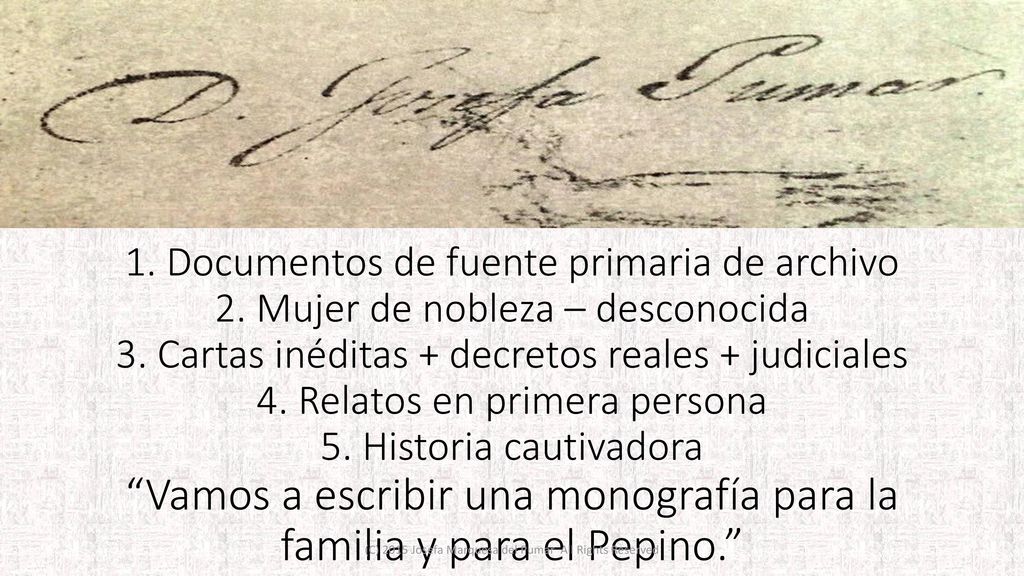 D. Josefa Pumar
1. Documentos de fuente primaria de archivo
2. Mujer de nobleza – desconocida
3. Cartas inéditas + decretos reales + judiciales
4. Relatos en primera persona
5. Historia cautivadora
“Vamos a escribir una monografía para la
familia y para el Pepino.”
(C) 2015 Josefa Marquesa del Pumar All Rights Reserved